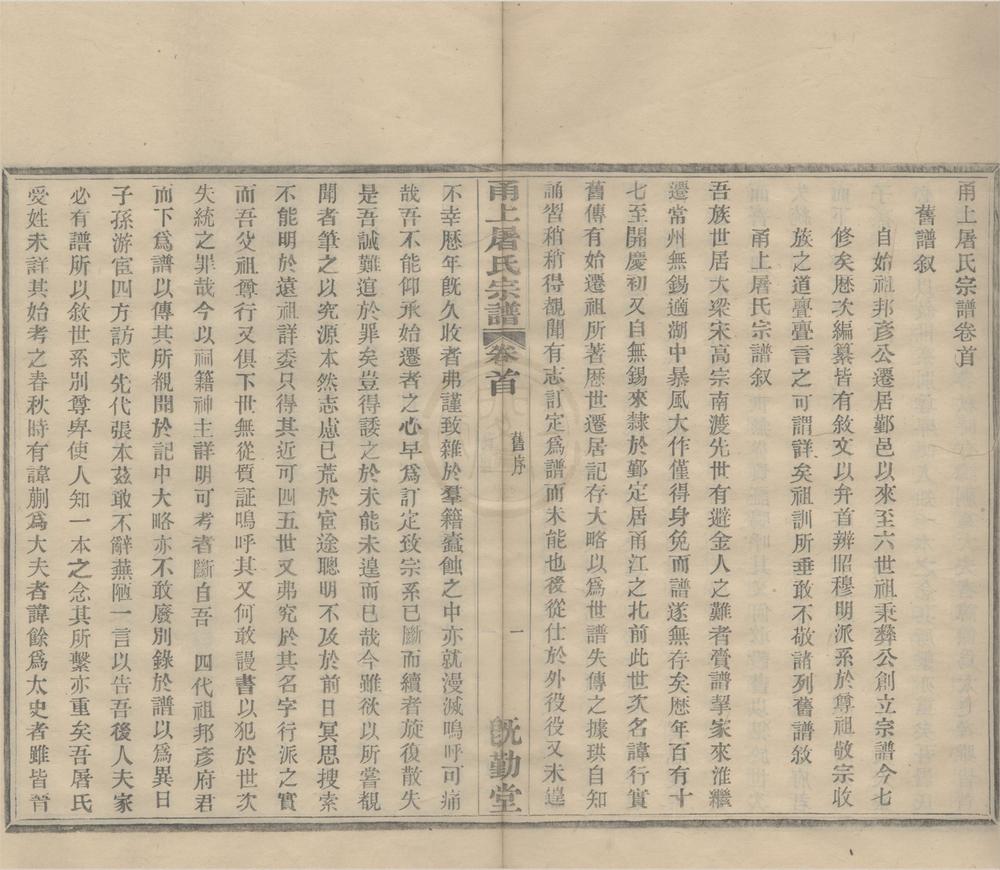 甬上屠氏宗譜卷首
舊譜叙
自始祖邦彥公遷居鄞邑以來至六世祖秉彜公創立宗譜今七
修矣厯次編纂皆有敘文以弁首辨昭穆明派系於尊祖敬宗收
族之道亹亹言之可謂詳矣祖訓所垂敢不敬諸列舊譜敘
甬上屠氏宗譜叙
吾族世居大梁宋高宗南渡先世有避金人之難者賫譜挈家來淮繼
遷常州無錫適湖中暴風大作僅得身免而譜遂無存矣厯年百有十
七至開慶初又自無錫來隸於鄞定居甬江之北前此世次名諱行實
舊傳有始遷祖所著厯世遷居記存大略以爲世譜失傳之據珙自知
誦習稍稍得覩聞有志訂定爲譜而未能也後從仕於外役役又未遑
甬上屠氏宗譜
卷首
舊序
一
旣勤堂
不幸厯年旣久收者弗謹致雜於羣籍蠹蝕之中亦就漫滅嗚呼可痛
哉吾不能仰承始遷者之心早爲訂定致宗系已斷而續者旋復散失
是吾誠難逭於罪矣豈得諉之於未能未遑而已哉今雖欲以所嘗覩
聞者筆之以究源本然志慮已荒於宦途聰明不及於前日冥思搜索
不能明於遠祖詳委只得其近可四五世又弗究於其名字行派之實
而吾父祖尊行又俱下世無從質証嗚呼其又何敢謾書以犯於世次
失統之罪哉今以祠籍神主詳明可考者斷自吾 四代祖邦彥府君
而下爲譜以傳其所覩聞於記中大略亦不敢廢別錄於譜以爲異日
子孫游宦四方訪求先代張本茲敢不辭蕪陋一言以告吾後人夫家
必有譜所以敘世系別尊卑使人知一本之念其所繫亦重矣吾屠氏
受姓未詳其始考之春秋時有諱蒯爲大夫者諱餘爲太史者雖皆晉